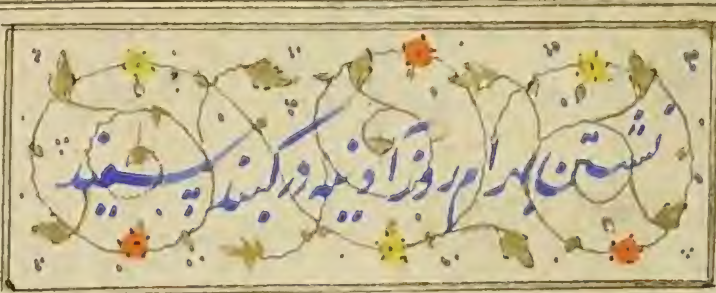 نشستن بهرام روز آدینه در گنبد سپید